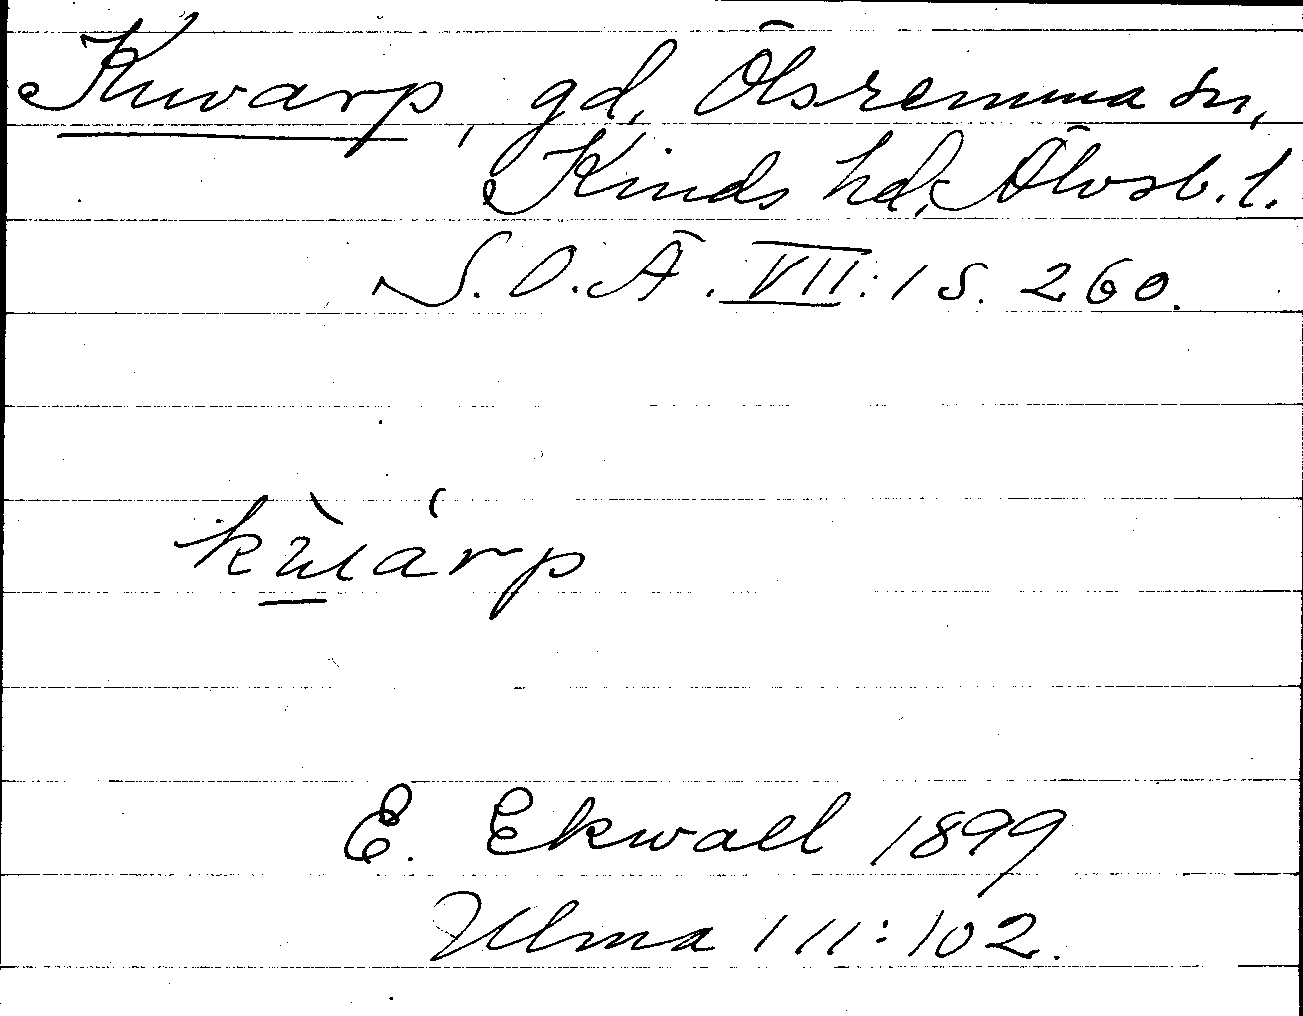 Kuvarp, gd, Ölsremma sn,
Kinds hd, Älvsb. l.
S. O. Ä. VII: 1 S. 260.
kùárp
E. Ekwall 1899
Ulma 111:102.